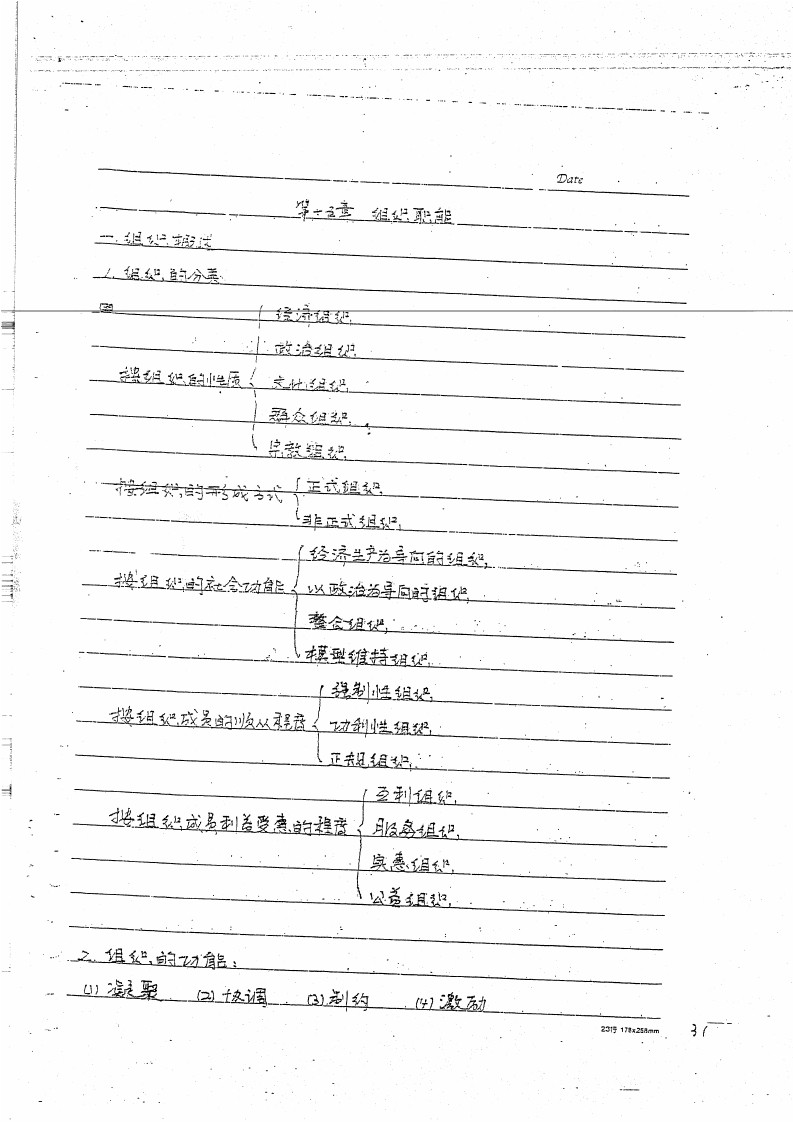 Date
第十五章 组织职能
一.组织概述
1.组织的分类:
经济组织.
政治组织.
按组织的性质 文化组织,
群众组织.
宗教组织.
按组织的形成方式 正式组织.
非正式组织,
经济生产为导向的组织,
按组织的社会功能 以政治为导向的组织,
整合组织,
模型维持组织.
强制性组织,
按组织成员的顺从程度 功利性组织,
正规组织,
互利组织,
按组织成员利益受惠的程度 服务组织,
实惠组织,
公益组织,
2. 组织的功能:
(1) 凝聚 (2) 协调 (3) 制约 (4) 激励
23行 178x258mm
31